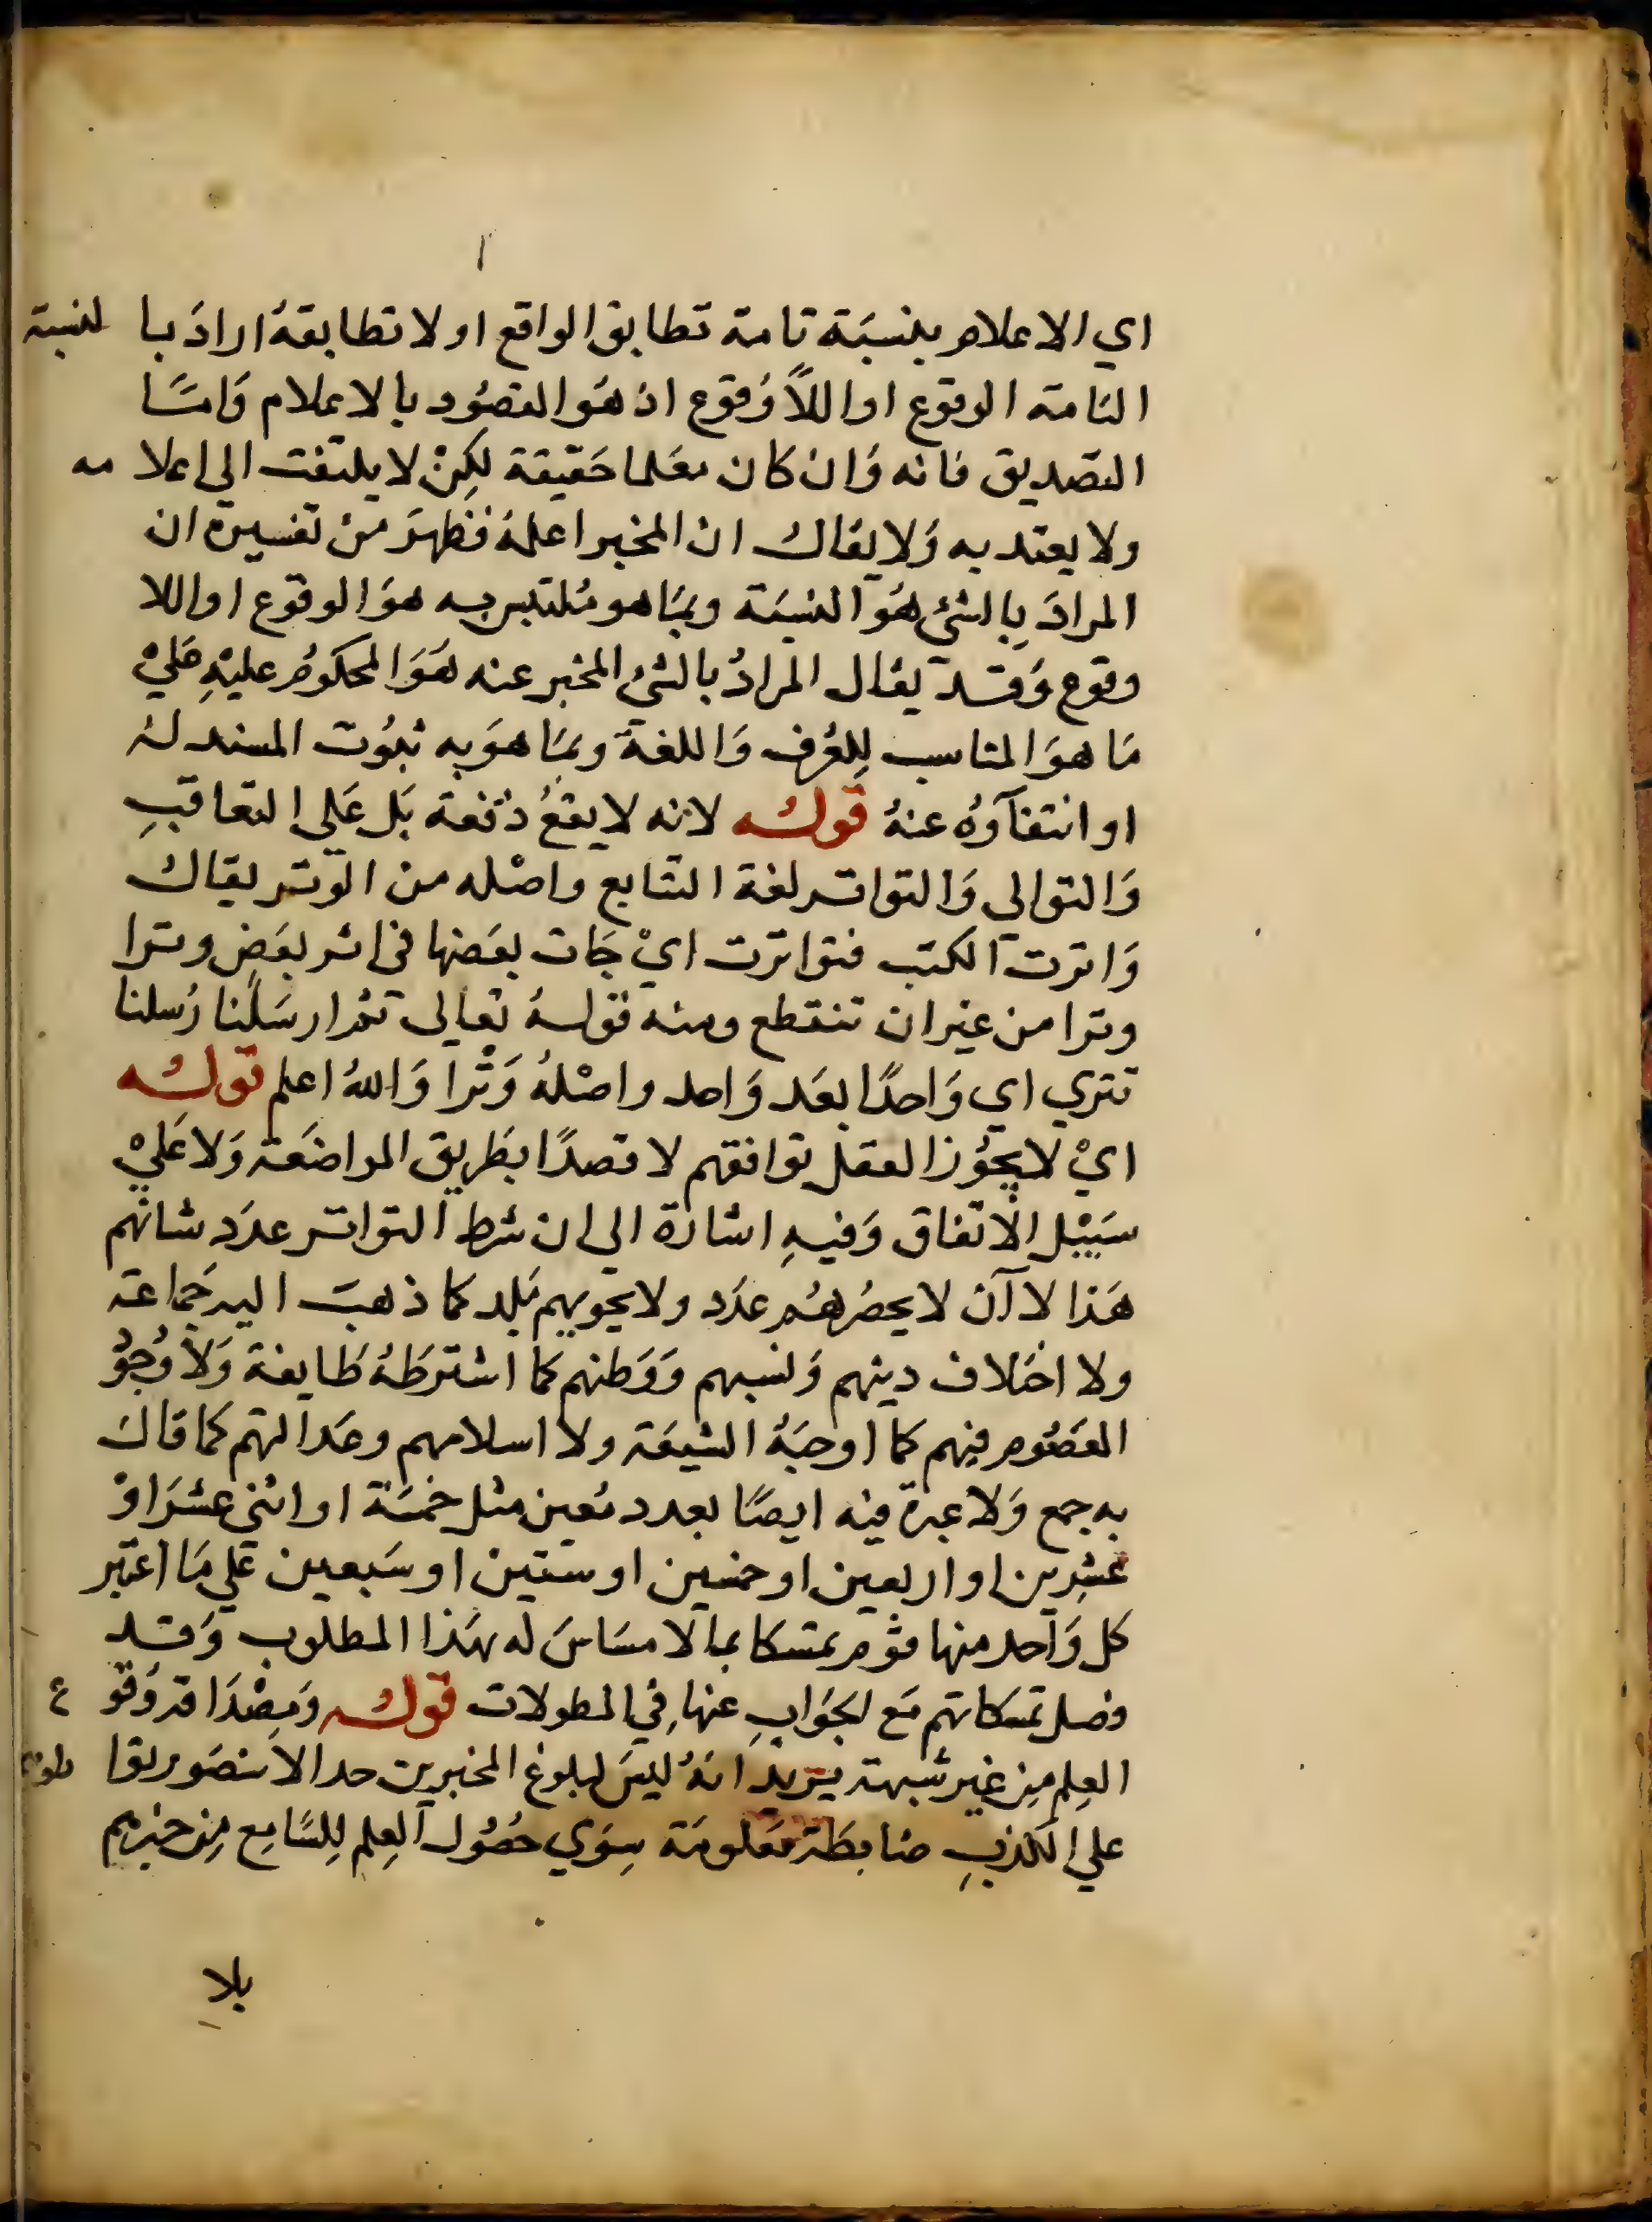 اي الاعلام بنسبة تامة تطابق الواقع او لا تطابقه اراد بالنسبة
التامة الوقوع او اللاوقوع اذ هو المقصود بالاعلام واما
التصديق فانه وان كان معلما حقيقة لكن لا يلتفت الي اعلامه
ولا يعتد به ولا يقال ان المخبر اعلمه فظهر من تفسيره ان
المراد بالشئ هو النسبة وبما هو ملتبس به هو الوقوع او اللا
وقوع وقد يقال المراد بالشئ المخبر عنه هو المحكوم عليه علي
ما هو المناسب للعرف واللغة وبما هو به ثبوت المسند له
او انتفاؤه عنه قوله لانه لا يقع دفعة بل علي التعاقب
والتوالي والتواتر لغة التتابع واصله من الوتر يقال
واترت الكتب فتواترت اي جات بعضها في اثر بعض وترا
وترا من غير ان تنقطع ومنه قوله تعالي ثم ارسلنا رسلنا
تتري اي واحدا بعد واحد واصله وترا والله اعلم قوله
اي لا يجوز العقل توافقهم لا قصدا بطريق المواضعة ولا علي
سبيل الاتفاق وفيه اشارة الي ان شرط التواتر عدد شانهم
هذا لا ان لا يحصرهم عدد ولا يحويهم بلد كما ذهب اليه جماعة
ولا اختلاف دينهم ونسبهم ووطنهم كما اشترطه طايفة ولا وجو
المعصوم فيهم كما اوجبه الشيعة ولا اسلامهم وعدالتهم كما قال
به جمع ولا عبرة فيه ايضا بعدد معين مثل خمسة او اثني عشر او
عشرين او اربعين او خمسين او ستين او سبعين علي ما اعتبر
كل واحد منها قوم متمسكا بما لا مساس له بهذا المطلوب وقد
فصل تمسكاتهم مع الجواب عنها في المطولات قوله ومصداقه وقوع
العلم من غير شبهة يريد انه ليس لبلوغ المخبرين حدا لا يتصور تواطؤهم
علي الكذب ضابطة معلومة سوي حصول العلم للسامع من خبرهم
بلا